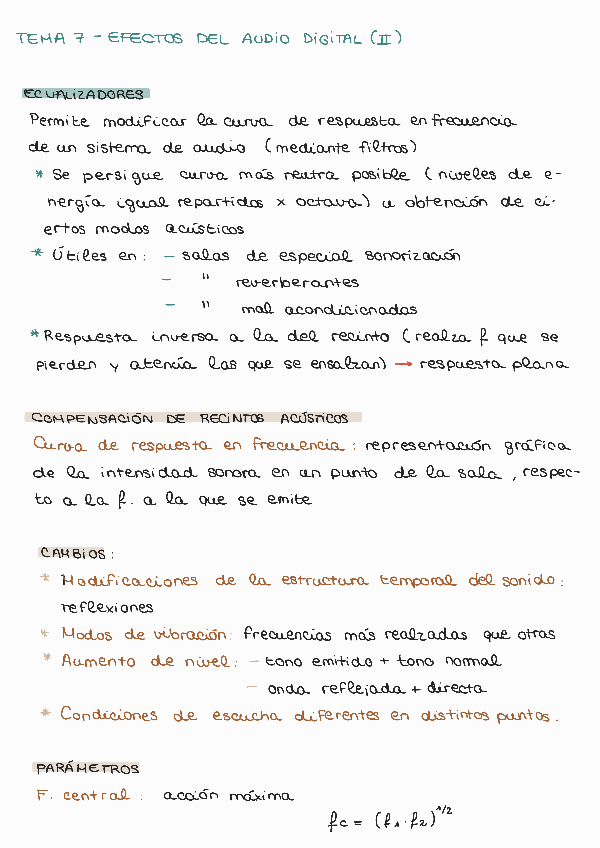 TEMA 7 - EFECTOS DEL AUDIO DIGITAL (II)
ECUALIZADORES
Permite modificar la curva de respuesta en frecuencia
de un sistema de audio (mediante filtros)
* Se persigue curva más neutra posible (niveles de e-
nergía igual repartidos x octava) u obtención de ci-
ertos modos acústicos
* Útiles en: - salas de especial sonorización
- " reverberantes
- " mal acondicionadas
* Respuesta inversa a la del recinto (realza f que se
pierden y atenúa las que se ensalzan) → respuesta plana
COMPENSACIÓN DE RECINTOS ACÚSTICOS
Curva de respuesta en frecuencia: representación gráfica
de la intensidad sonora en un punto de la sala, respec-
to a la f. a la que se emite
CAMBIOS:
* Modificaciones de la estructura temporal del sonido:
reflexiones
* Modos de vibración: frecuencias más realzadas que otras
* Aumento de nivel: - tono emitido + tono normal
- onda reflejada + directa
* Condiciones de escucha diferentes en distintos puntos.
PARÁMETROS
F. central: acción máxima
fc = (f₁·f₂)^1/2